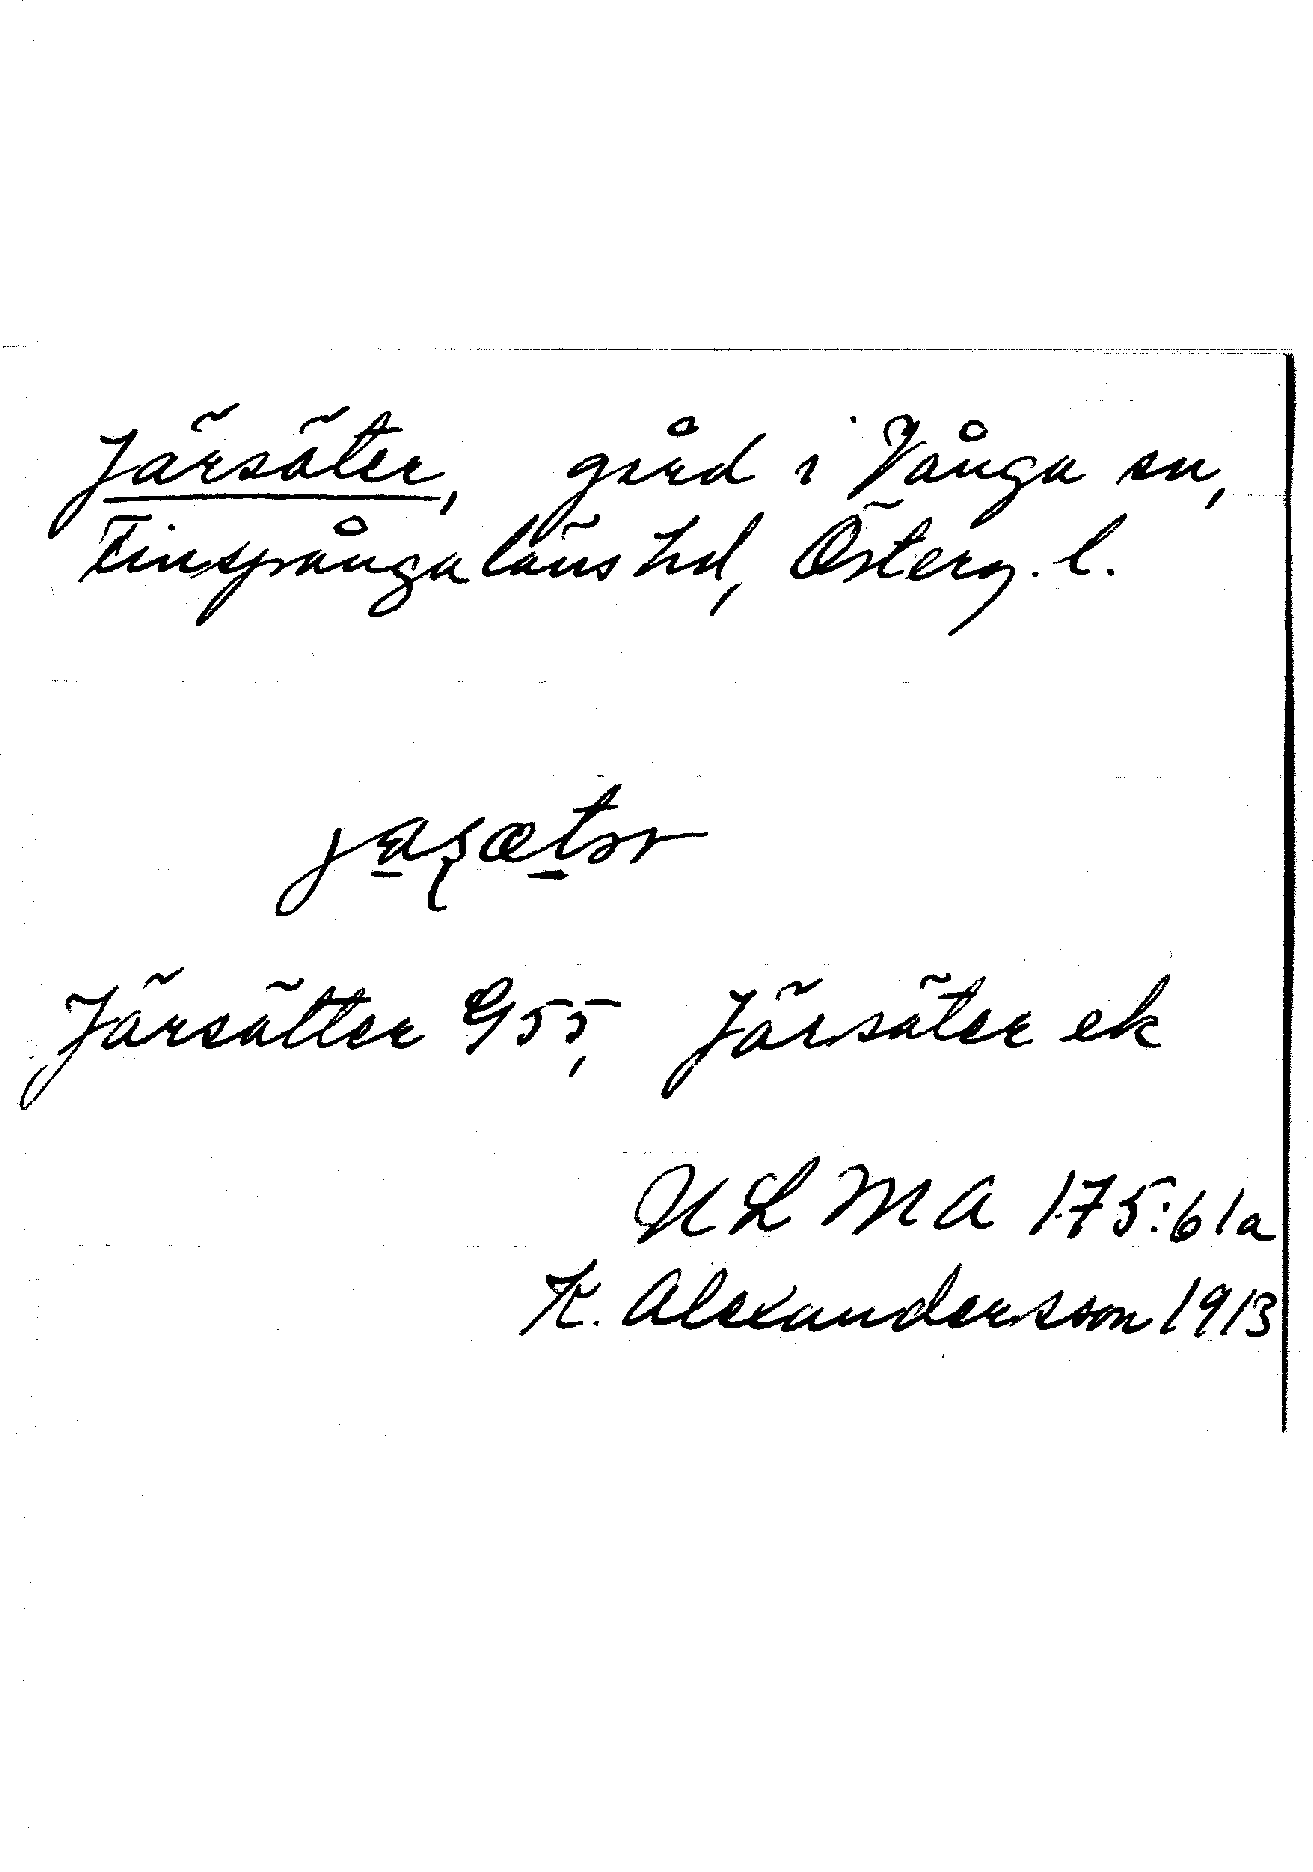 Järsäter, gård i Vånga sn,
Finspånga läns hd, Österg. l.
Järsätter G55, Järsäter ek
ULMA 175:61a
K. Alexandersson 1913